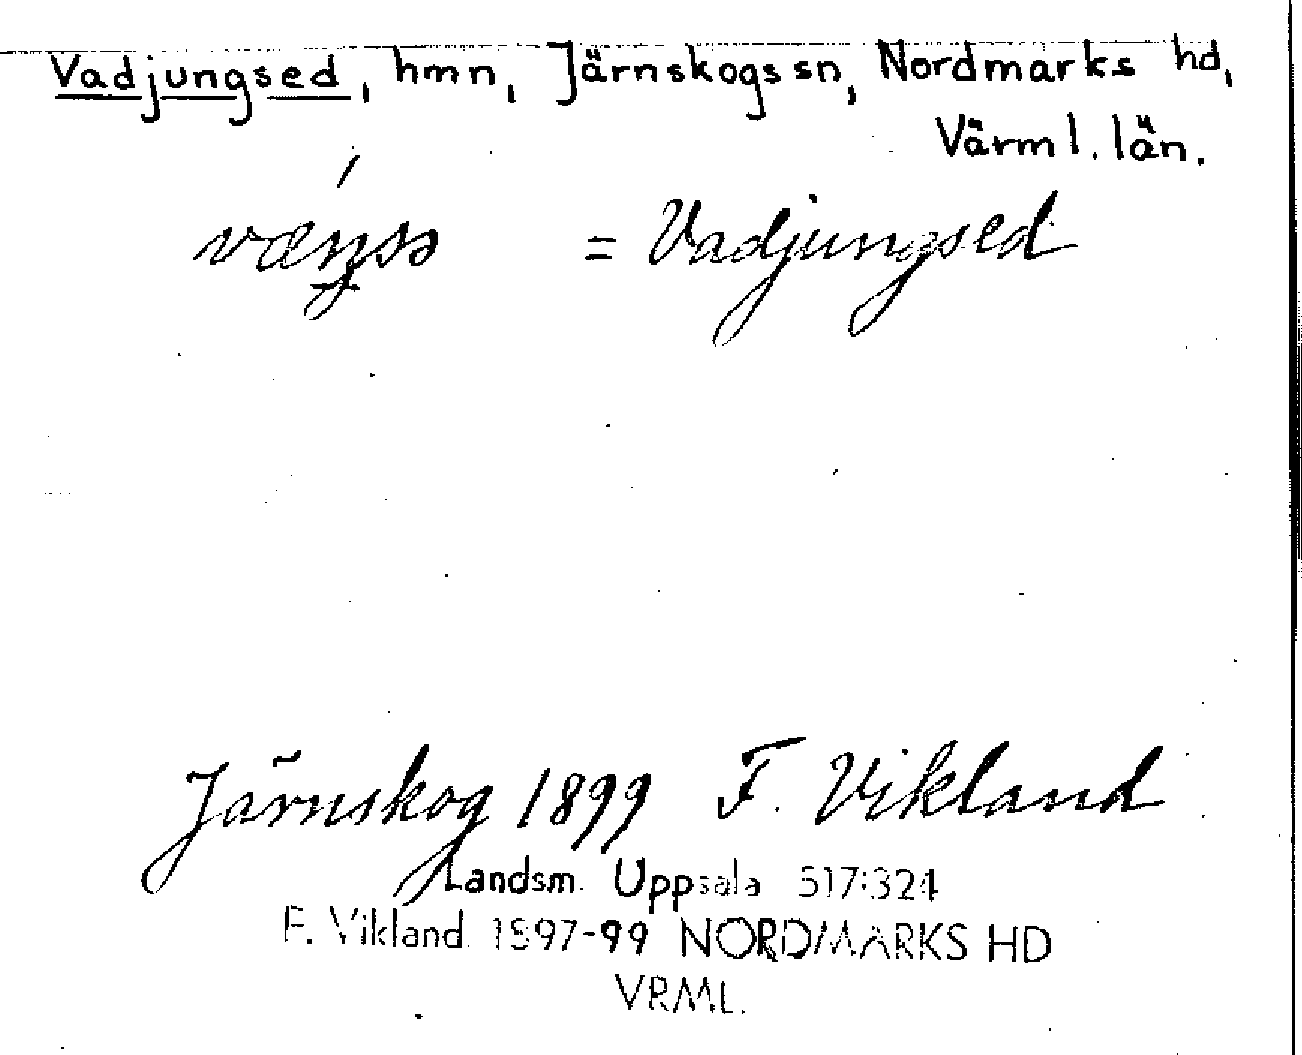 Vadjungsed, hmn, Järnskogs sn, Nordmarks hd,
Värml. län.
= Vadjungsed
Järnskog 1899 F. Vikland
Landsm. Uppsala 517:324
F. Vikland 1897-99 NORDMARKS HD
VRML.